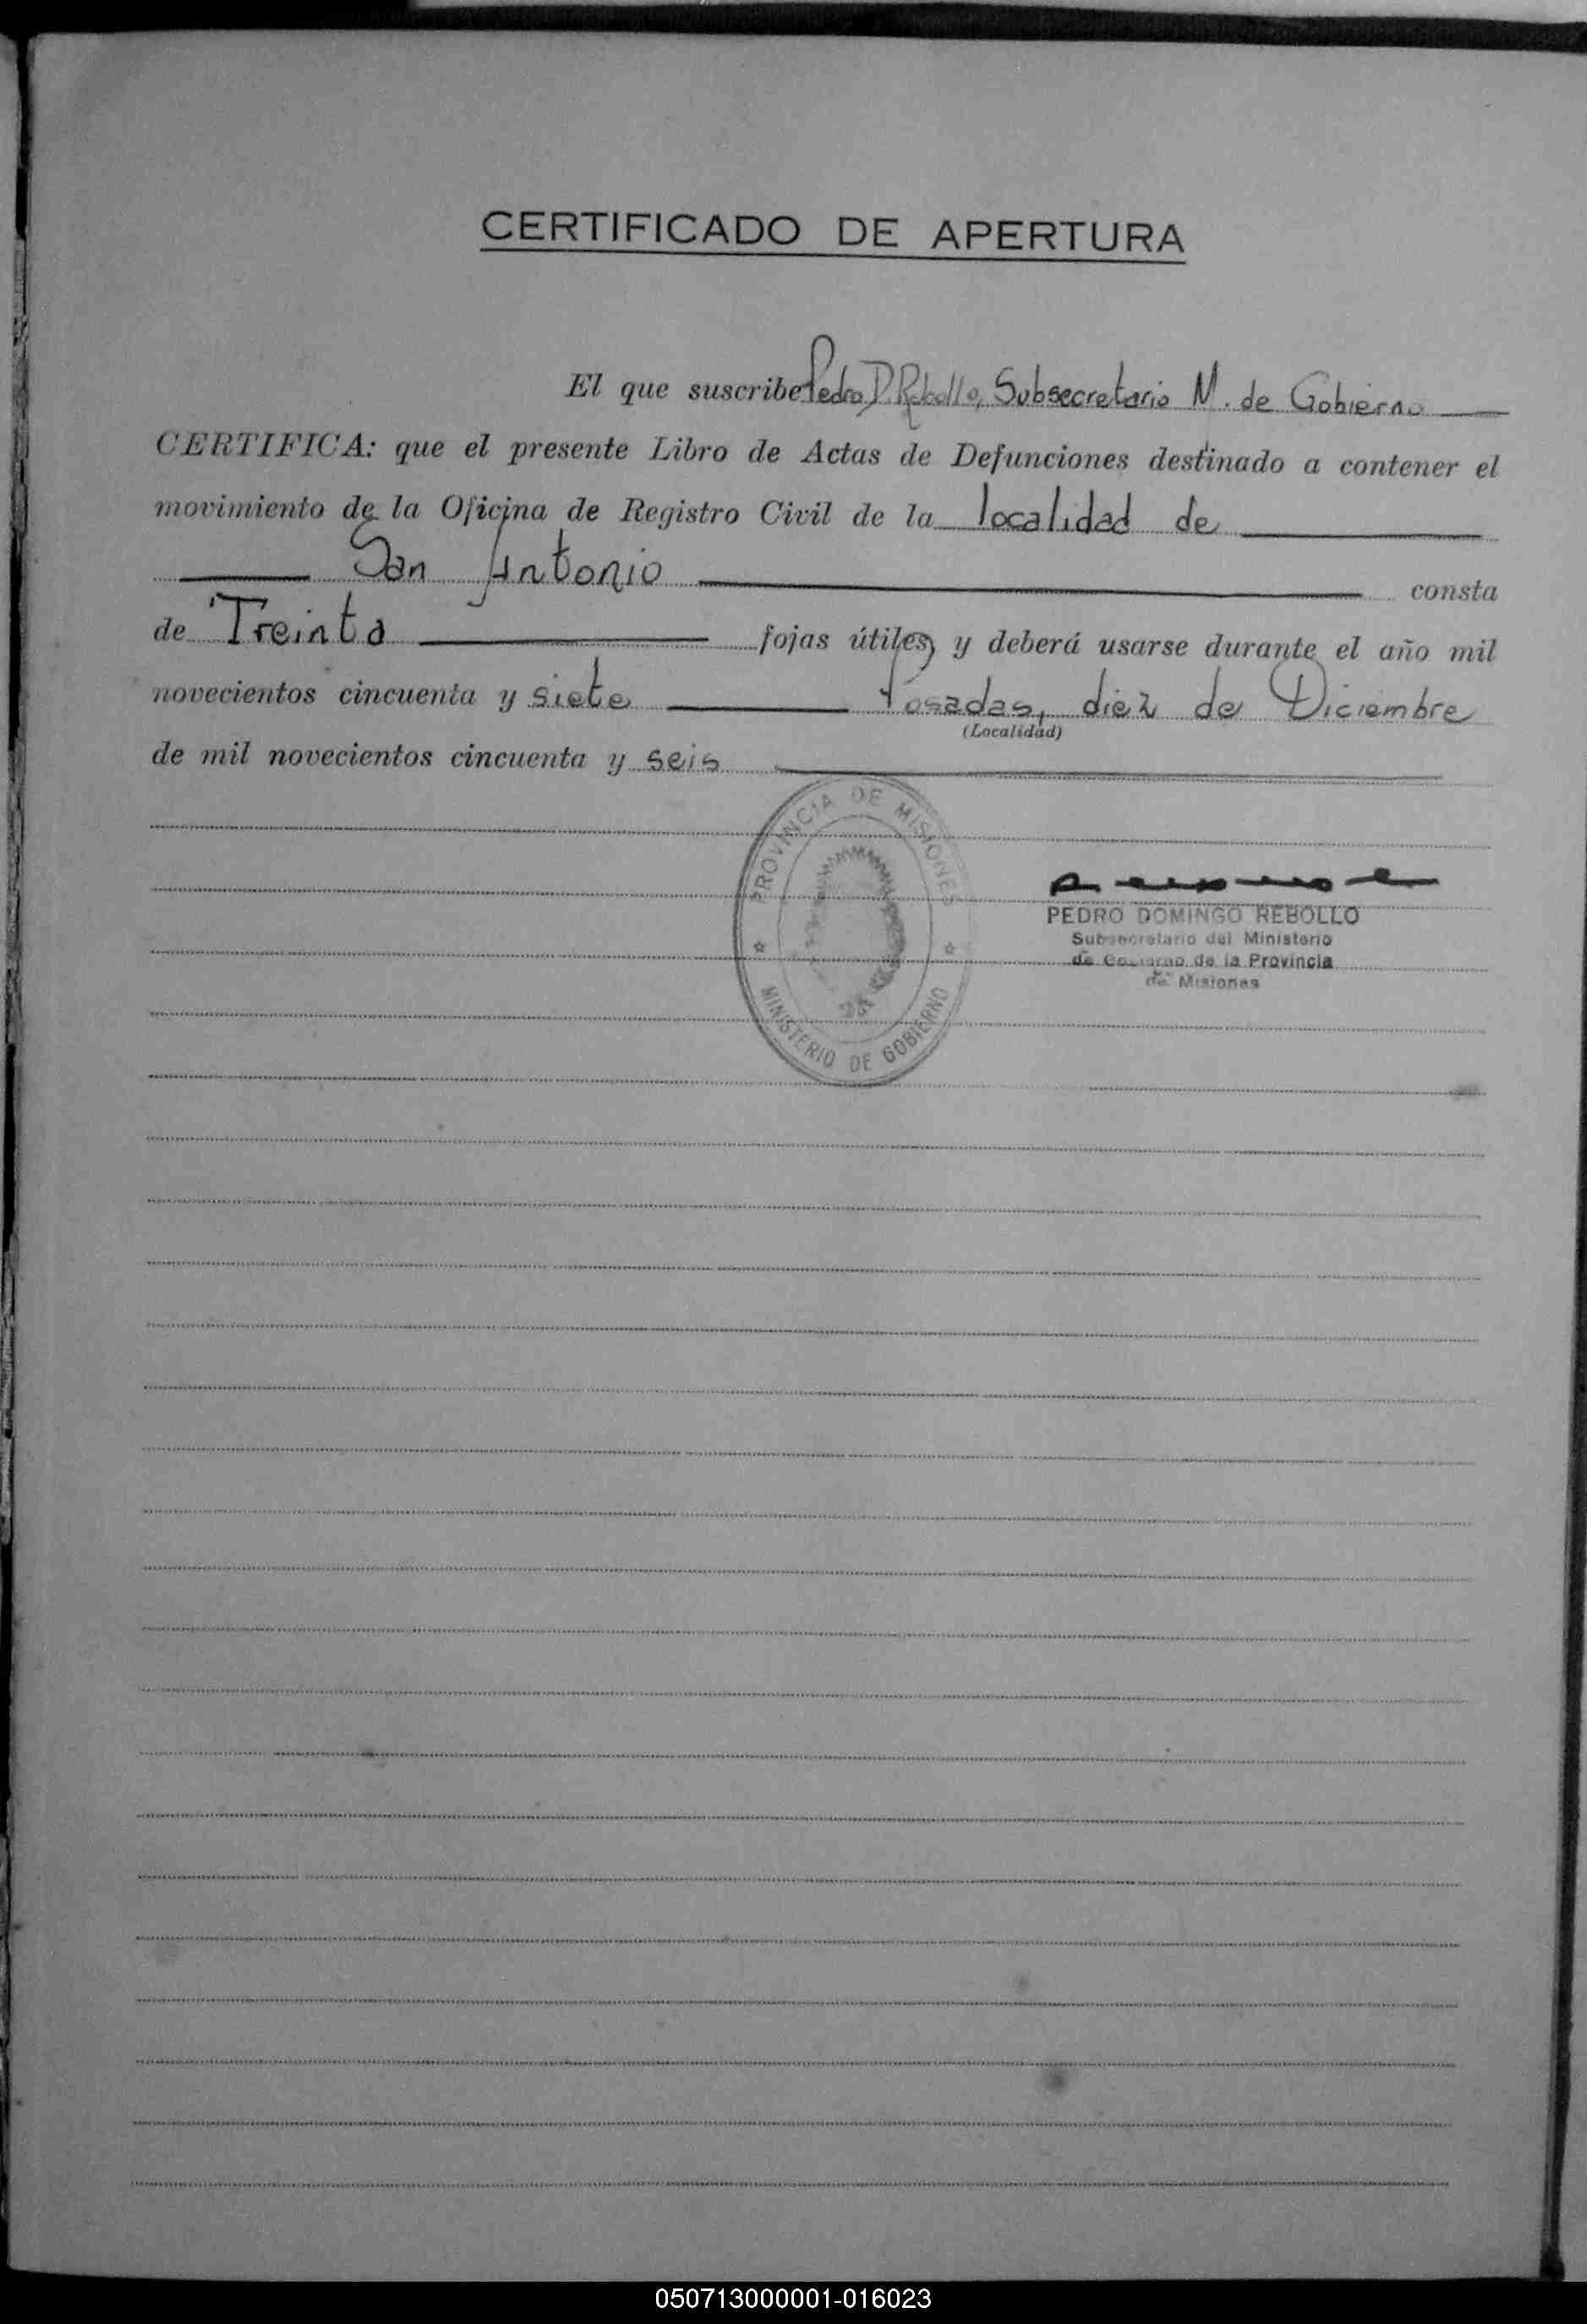 CERTIFICADO DE APERTURA
El que suscribe Pedro D. Rebollo, Subsecretario M. de Gobierno
CERTIFICA: que el presente Libro de Actas de Defunciones destinado a contener el
movimiento de la Oficina de Registro Civil de la localidad de
San Antonio consta
de Treinta fojas útiles, y deberá usarse durante el año mil
novecientos cincuenta y siete Posadas, diez de Diciembre
(Localidad)
de mil novecientos cincuenta y seis
PROVINCIA DE MISIONES
MINISTERIO DE GOBIERNO
PEDRO DOMINGO REBOLLO
Subsecretario del Ministerio
de Gobierno de la Provincia
de Misiones
050713000001-016023